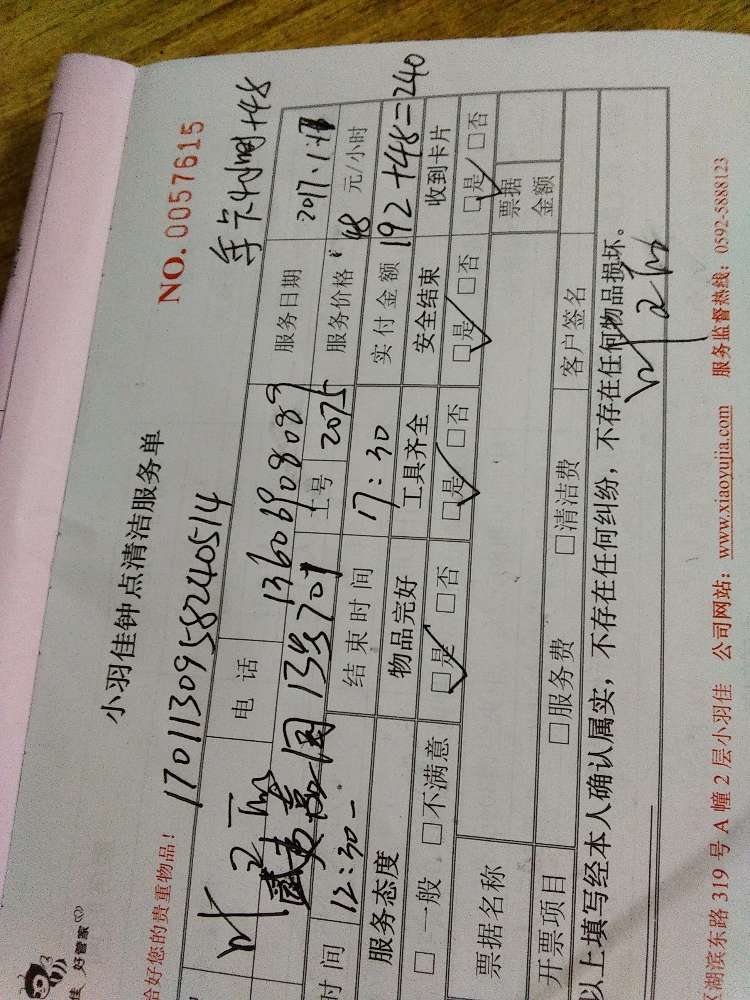 小羽佳钟点清洁服务单
NO.0057615
佳 好管家
恰好您的贵重物品!
17011309582405​14
年卡4小时+48
叶 电话 13606908089 服务日期 2017.1.
嘉园13号701 工号 2075 服务价格 48 元/小时
时间 12:30- 结束时间 17:30 实付金额 192+48=240
服务态度 物品完好 工具齐全 安全结束 收到卡片
□一般 □不满意 □是 □否 □是 □否 □是 □否 □是 □否
票据名称 票据金额
开票项目 □服务费 □清洁费 客户签名
以上填写经本人确认属实,不存在任何纠纷,不存在任何物品损坏。
叶
湖滨东路319号A幢2层小羽佳 公司网站:www.xiaoyujia.com 服务监督热线:0592-5888123